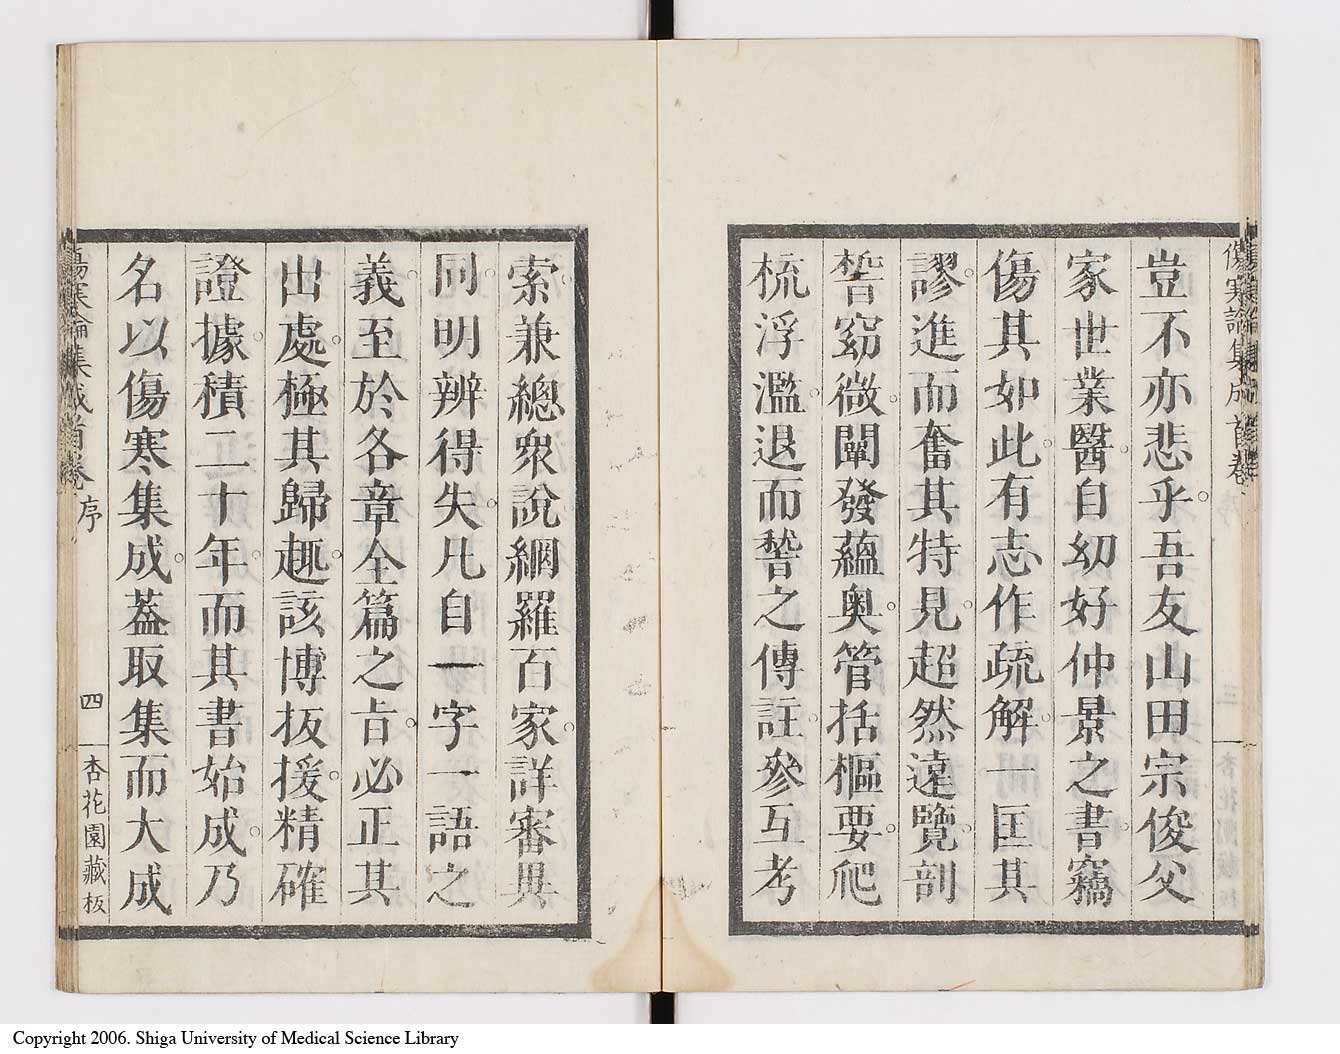 傷寒論集成首卷 序 三 杏花園藏板
豈不亦悲乎吾友山田宗俊父
家世業醫自幼好仲景之書竊
傷其如此有志作疏解一匡其
謬進而奮其特見超然遠覽剖
晳窈微闡發蘊奥管括樞要爬
梳浮濫退而稽之傳註參互考
索兼總衆說網羅百家詳審異
同明辨得失凡自一字一語之
義至於各章全篇之㫖必正其
出處極其歸趣該博扳援精確
證據積二十年而其書始成乃
名以傷寒集成葢取集而大成
傷寒論集成首卷 序 四 杏花園藏板
Copyright 2006. Shiga University of Medical Science Library